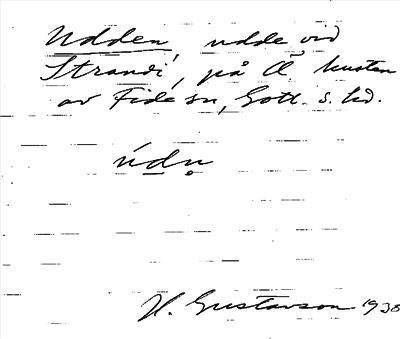 Udden, udde vid
Strandi, på Ö kusten
av Fide sn, Gotl. s. hd.
údn̥
H. Gustavson 1938